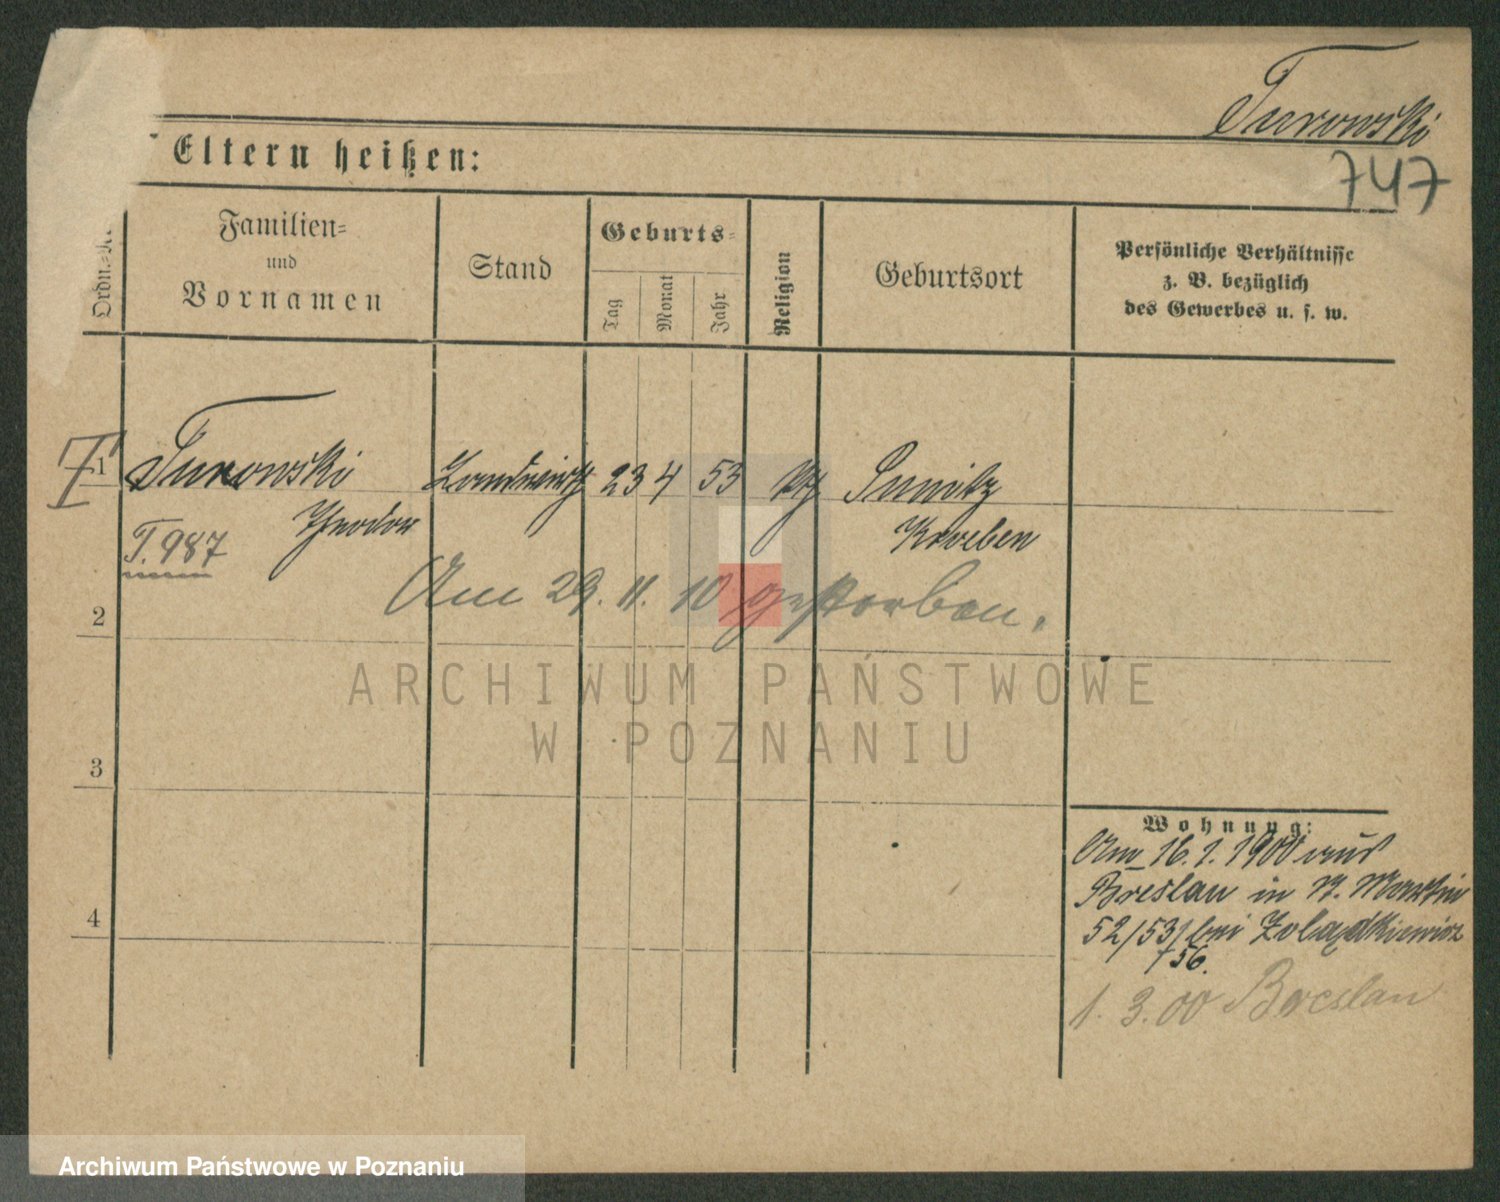 Turowski
747
Eltern heißen:
Ordn.=Nr.
Familien=
und
Vornamen
Stand
Geburts=
Tag
Monat
Jahr
Religion
Geburtsort
Persönliche Verhältnisse
z. B. bezüglich
des Gewerbes u. s. w.
1
Turowski
Theodor
Landwirth
23
4
53
Punitz
Kroeben
T. 987
Am 29. 11. 10 gestorben.
2
3
4
Wohnung:
Am 16. 1. 1900 aus
Breslau in St. Martin
52/53/bei
756.
1. 3. 00 Breslau
ARCHIWUM PAŃSTWOWE
W POZNANIU
Archiwum Państwowe w Poznaniu